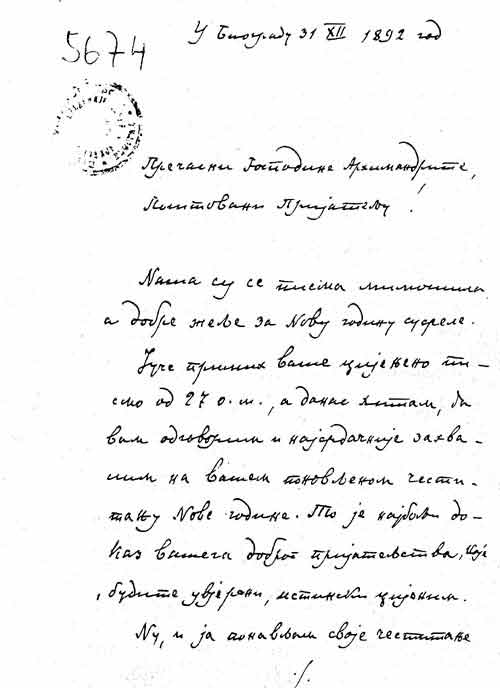 5674
У Биограду 31 XII 1892 год
Пречасни Господине Архимандрите,
Поштовани Пријатељу!
Наша су се писма мимоишла
а добре жеље за Нову годину суреле.
Јуче примих ваше цијењено пи-
смо од 27 о. м., а данас хитам, да
вам одговорим и најсрдачније захва-
лим на вашем поновљеном чести-
тању Нове године. То је најбољи до-
каз вашега доброг пријатељства, које
, будите увјерени, истински цијеним.
Ну, и ја понављам своје честитање
./.